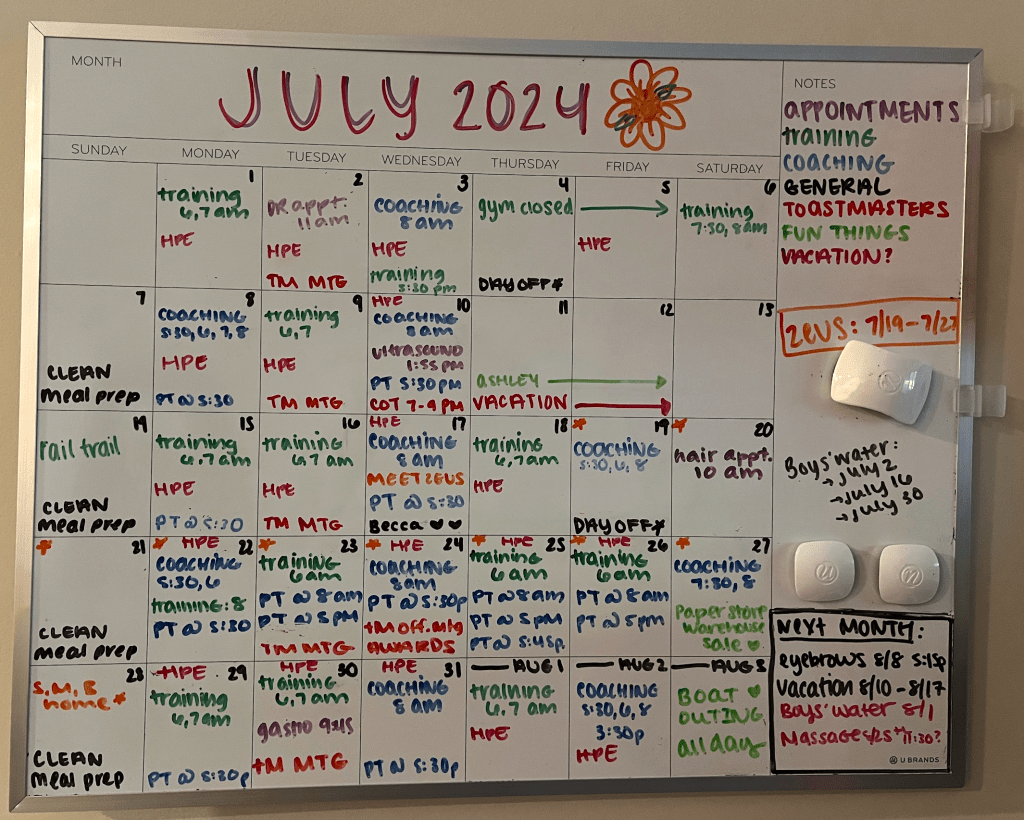 MONTH
JULY 2024
SUNDAY
MONDAY
TUESDAY
WEDNESDAY
THURSDAY
FRIDAY
SATURDAY
1
training
6,7 am
HPE
2
DR appt.
11am
HPE
TM MTG
3
COACHING
8am
HPE
training
5:30 pm
4
gym closed
DAY OFF*
5
HPE
6
training
7:30, 8am
7
CLEAN
meal prep
8
COACHING
5:30,6,7,8
HPE
PT @ 5:30
9
training
6,7
HPE
TM MTG
HPE 10
COACHING
8am
ultrasound
1:55 PM
PT 5:30PM
COT 7-9 PM
11
ASHLEY
VACATION
12
13
14
rail trail
CLEAN
meal prep
15
training
6,7am
HPE
PT @ 5:30
16
training
6,7 am
HPE
TM MTG
HPE 17
COACHING
8 am
MEET ZEUS
PT @ 5:30
Becca ♥♥
18
training
6,7am
HPE
19
COACHING
5:30,6,8
DAY OFF*
20
hair appt.
10 am
21
CLEAN
meal prep
HPE 22
COACHING
5:30,6
training: 8
PT @ 5:30
23
training
6am
PT @ 8am
PT @ 5PM
TM MTG
HPE 24
COACHING
8am
PT @ 5:30p
TM off. mtg
AWARDS
HPE 25
training
6am
PT @ 8am
PT @ 5PM
PT @ 5:45p
HPE 26
training
6am
PT @ 8am
PT @ 5pm
27
COACHING
7:30, 8
Paper store
warehouse
sale ♥
28
S, M, B
home*
CLEAN
meal prep
HPE 29
training
6,7am
PT @ 5:30p
HPE 30
training
6,7am
gastro 9:15
TM MTG
HPE 31
COACHING
8 am
PT @ 5:30p
AUG 1
training
6,7 am
HPE
AUG 2
COACHING
5:30,6,8
3:30p
HPE
AUG 3
BOAT ♥
OUTING
all day
NOTES
APPOINTMENTS
training
COACHING
GENERAL
TOASTMASTERS
FUN THINGS
VACATION?
ZEUS: 7/19-7/27
Boys' water:
→ July 2
→ July 16
→ July 30
NEXT MONTH:
eyebrows 8/8 5:15p
vacation 8/10-8/17
Boys' water 8/1
Massage 11:30?
U BRANDS